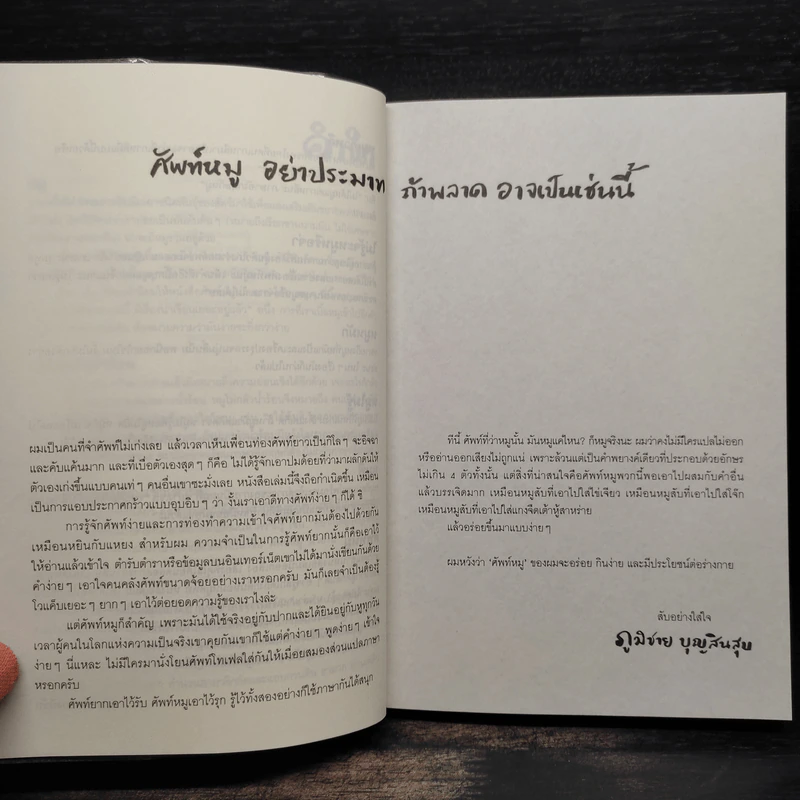 ศัพท์หมู อย่าประมาท
ผมเป็นคนที่จำศัพท์ไม่เก่งเลย แล้วเวลาเห็นเพื่อนท่องศัพท์ยาวเป็นกิโล ๆ จะอิจฉา
และคับแค้นมาก และที่เบื่อตัวเองสุด ๆ ก็คือ ไม่ได้รู้จักเอาปมด้อยที่ว่ามาผลักดันให้
ตัวเองเก่งขึ้นแบบคนเท่ ๆ คนอื่นเขาซะมั่งเลย หนังสือเล่มนี้จึงถือกำเนิดขึ้น เหมือน
เป็นการแอบประกาศกร้าวแบบอุบอิบ ๆ ว่า งั้นเราเอาดีทางศัพท์ง่าย ๆ ก็ได้ ชิ
การรู้จักศัพท์ง่ายและการท่องทำความเข้าใจศัพท์ยากมันต้องไปด้วยกัน
เหมือนหยินกับแหยง สำหรับผม ความจำเป็นในการรู้ศัพท์ยากนั้นก็คือเอาไว้
ให้อ่านแล้วเข้าใจ ตำรับตำราหรือข้อมูลบนอินเทอร์เน็ตเขาไม่ได้มานั่งเขียนกันด้วย
คำง่าย ๆ เอาใจคนคลังศัพท์ขนาดจ้อยอย่างเราหรอกครับ มันก็เลยจำเป็นต้องรู้
โวแค็บเยอะ ๆ ยาก ๆ เอาไว้ต่อยอดความรู้ของเราไงล่ะ
แต่ศัพท์หมูก็สำคัญ เพราะมันได้ใช้จริงอยู่กับปากและได้ยินอยู่กับหูทุกวัน
เวลาผู้คนในโลกแห่งความเป็นจริงเขาคุยกันเขาก็ใช้แต่คำง่าย ๆ พูดง่าย ๆ เข้าใจ
ง่าย ๆ นี่แหละ ไม่มีใครมานั่งโยนศัพท์โทเฟลใส่กันให้เมื่อยสมองส่วนแปลภาษา
หรอกครับ
ศัพท์ยากเอาไว้รับ ศัพท์หมูเอาไว้รุก รู้ไว้ทั้งสองอย่างก็ใช้ภาษากันได้สนุก
ถ้าพลาด อาจเป็นเช่นนี้
ทีนี้ ศัพท์ที่ว่าหมูนั้น มันหมูแค่ไหน? ก็หมูจริงนะ ผมว่าคงไม่มีใครแปลไม่ออก
หรืออ่านออกเสียงไม่ถูกแน่ เพราะล้วนแต่เป็นคำพยางค์เดียวที่ประกอบด้วยอักษร
ไม่เกิน 4 ตัวทั้งนั้น แต่สิ่งที่น่าสนใจคือศัพท์หมูพวกนี้พอเอาไปผสมกับคำอื่น
แล้วบรรเจิดมาก เหมือนหมูสับที่เอาไปใส่ไข่เจียว เหมือนหมูสับที่เอาไปใส่โจ๊ก
เหมือนหมูสับที่เอาไปใส่แกงจืดเต้าหู้สาหร่าย
แล้วอร่อยขึ้นมาแบบง่าย ๆ
ผมหวังว่า ‘ศัพท์หมู’ ของผมจะอร่อย กินง่าย และมีประโยชน์ต่อร่างกาย
สับอย่างใส่ใจ
ภูมิชาย บุญสินสุข